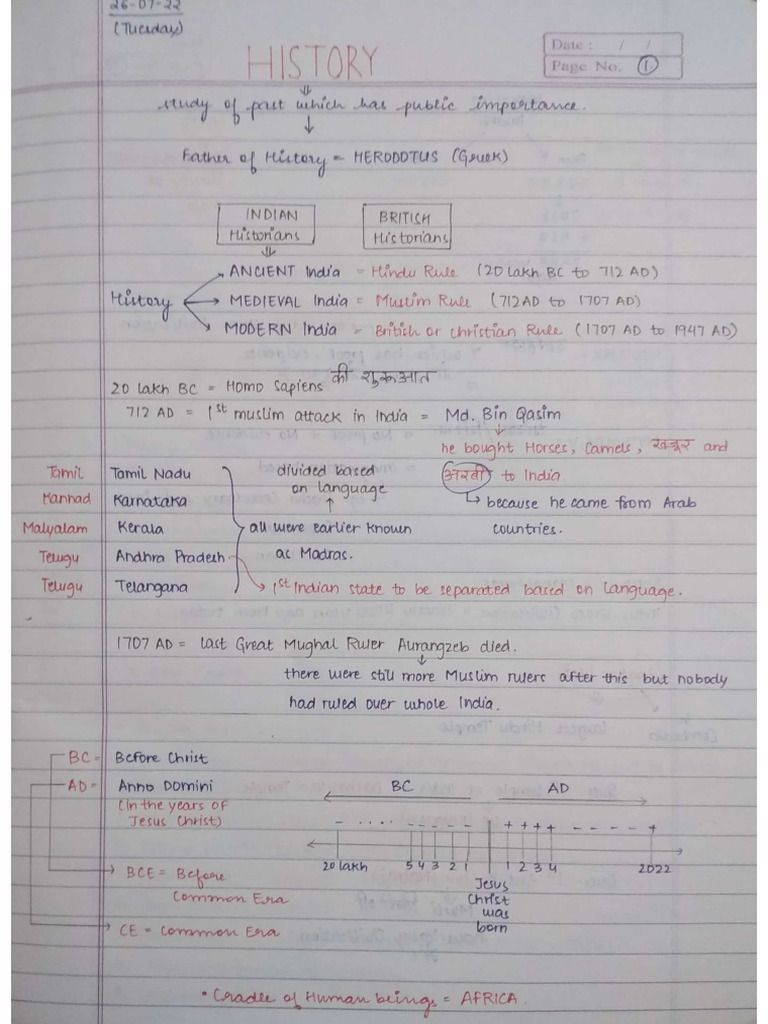 26-07-22
(Tuesday)
Date : / /
Page No. 1
HISTORY
study of past which has public importance.
Father of History = HERODOTUS (Greek)
INDIAN Historians
BRITISH Historians
History
ANCIENT India = Hindu Rule (20 lakh BC to 712 AD)
MEDIEVAL India = Muslim Rule (712 AD to 1707 AD)
MODERN India = British or Christian Rule (1707 AD to 1947 AD)
20 lakh BC = Homo Sapiens की शुरूआत
712 AD = 1st muslim attack in India = Md. Bin Qasim
he bought Horses, Camels, खजूर and
अरबी to India
because he came from Arab
countries.
Tamil Tamil Nadu
Kannad Karnataka
Malyalam Kerala
Telugu Andhra Pradesh
Telugu Telangana
divided based
on language
all were earlier known
as Madras.
1st Indian state to be separated based on language.
1707 AD = last Great Mughal Ruler Aurangzeb died.
there were still more Muslim rulers after this but nobody
had ruled over whole India.
BC = Before Christ
AD = Anno Domini
(In the years of
Jesus Christ)
BCE = Before
Common Era
CE = Common Era
BC AD
- .... - - - - - + + + + - - - - +
20 lakh 5 4 3 2 1 1 2 3 4 2022
Jesus
Christ
was
born
• Cradle of Human beings = AFRICA.